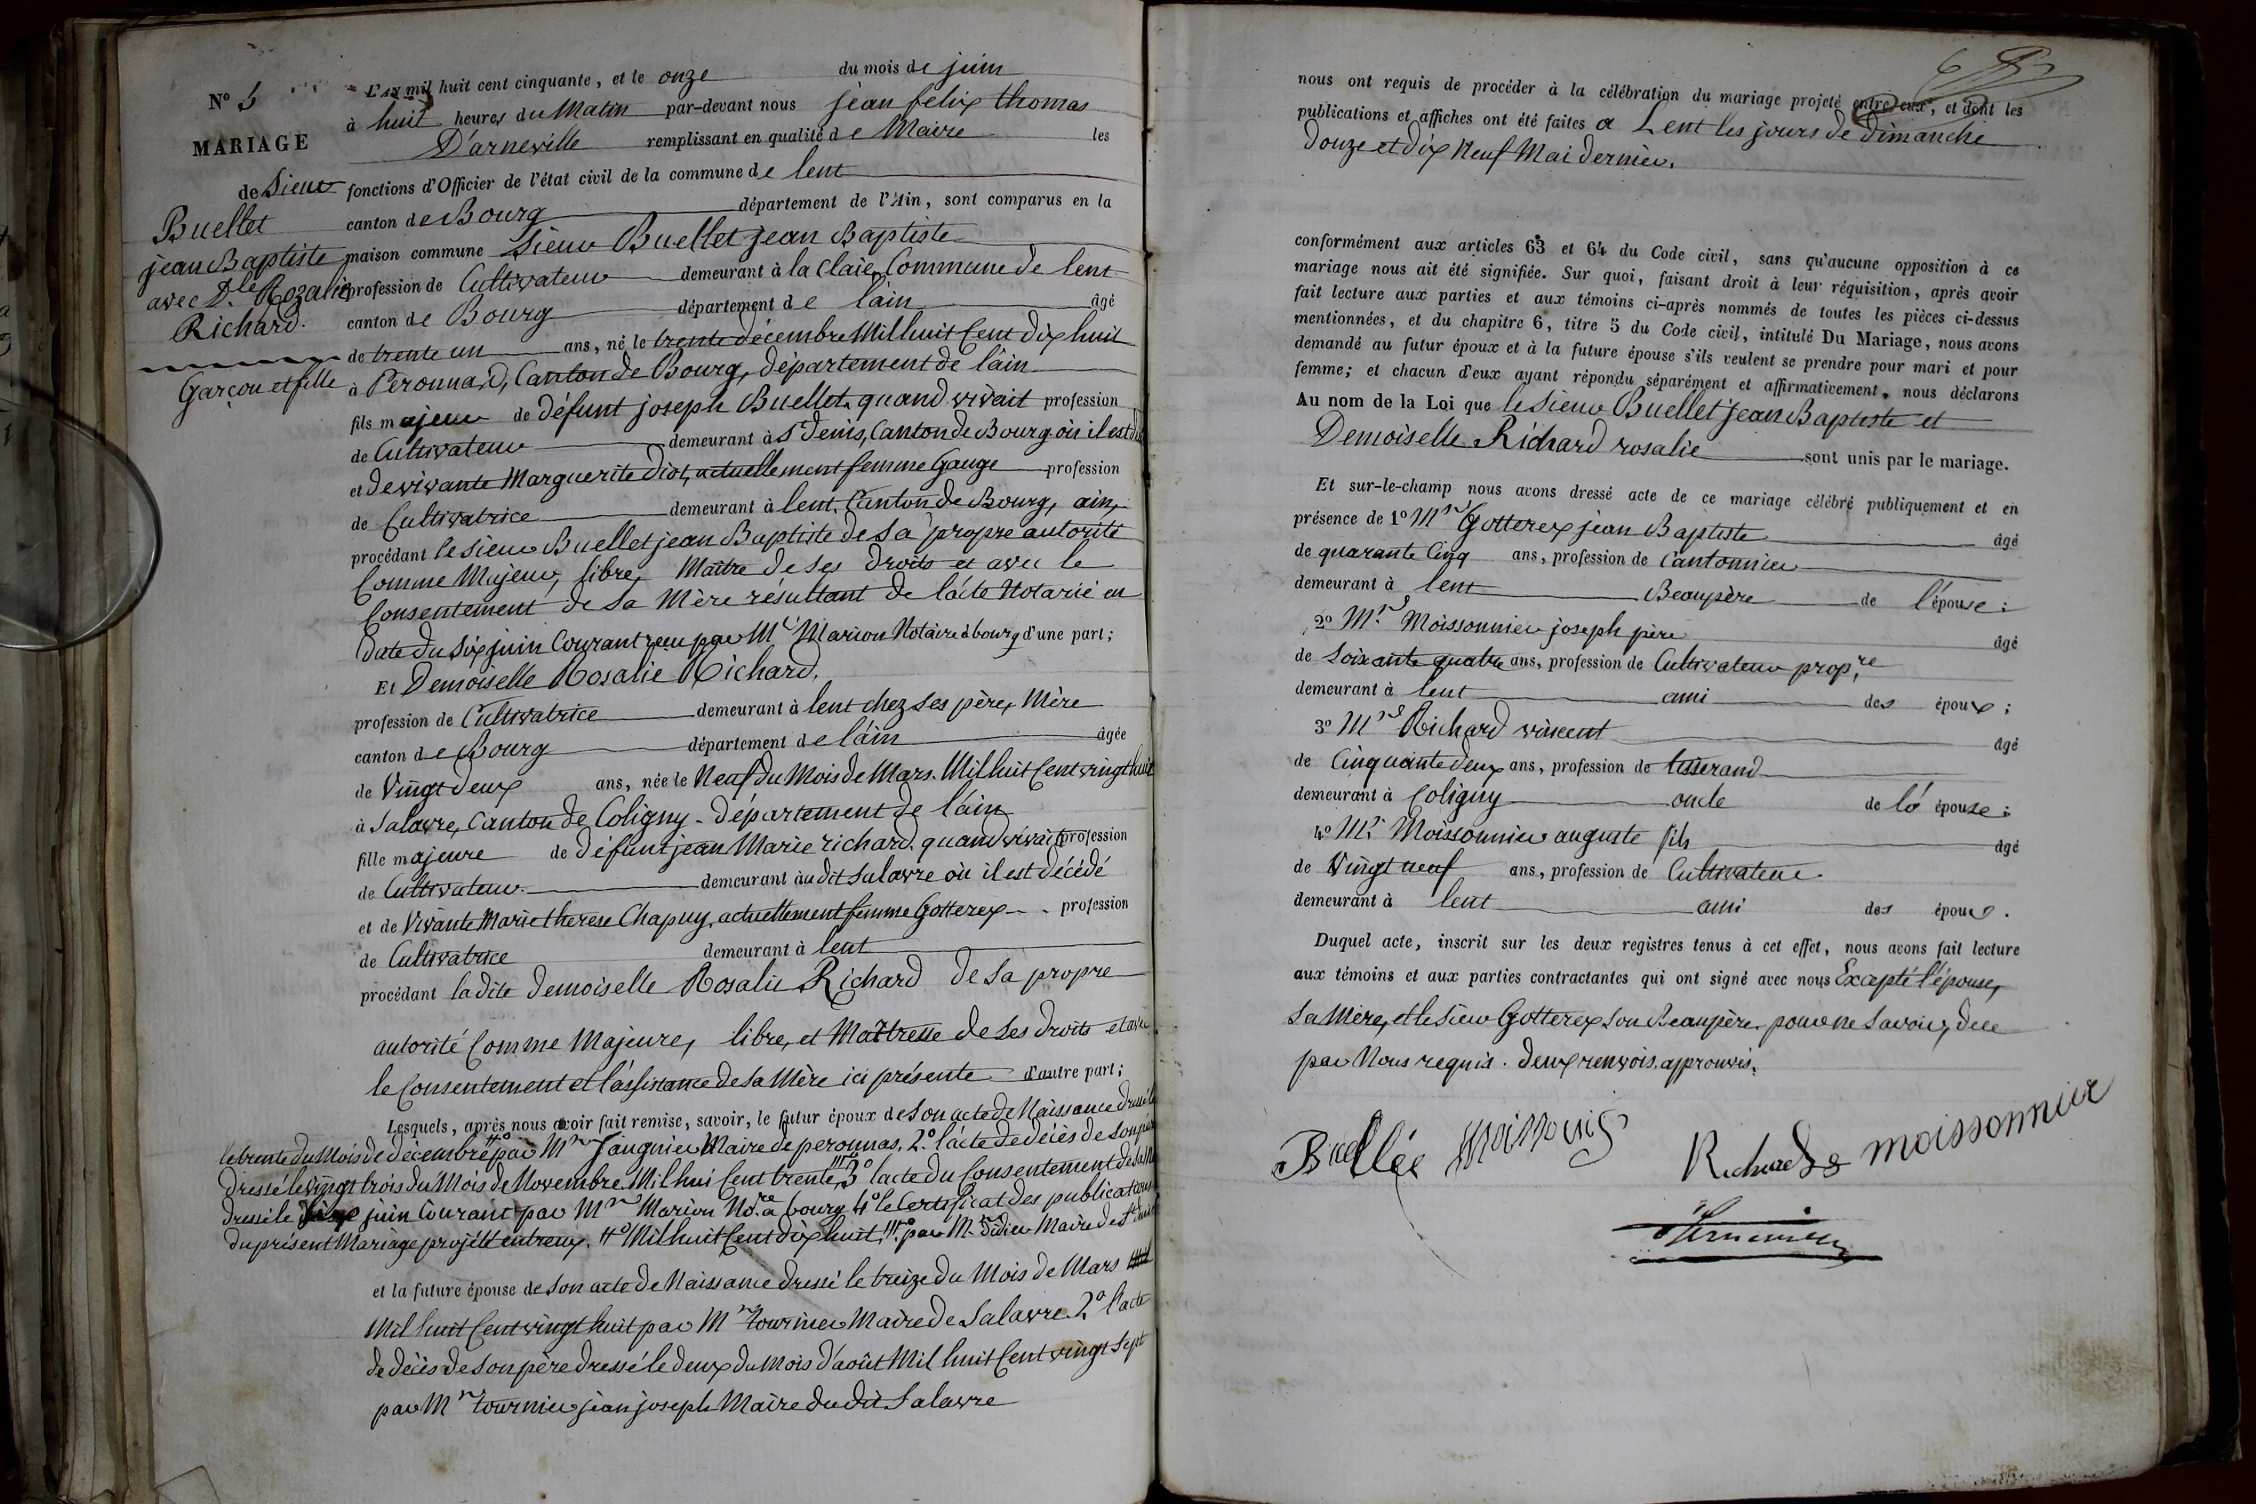 N° 5
MARIAGE
de Sieur
Buellet
jean Baptiste
avec D.lle Rozalie
Richard.
Garçon et fille
L'AN mil huit cent cinquante, et le onze du mois de juin
à huit heures du Matin par-devant nous jean felix thomas
D'arneville remplissant en qualité de Maire les
fonctions d'Officier de l'état civil de la commune de lent
canton de Bourg département de l'Ain, sont comparus en la
maison commune Sieur Buellet jean Baptiste
profession de Cultivateur demeurant à la Claie, Commune de lent
canton de Bourg département de l'ain âgé
de trente un ans, né le trente décembre Mil huit Cent dix huit
à Peronnas, Canton de Bourg, département de l'ain
fils majeur de défunt joseph Buellet quand vivait profession
de Cultivateur demeurant à St Denis, Canton de Bourg où il est dcd
et de vivante Marguerite Diot, actuellement femme Gauge profession
de Cultivatrice demeurant à lent, Canton de Bourg, ain,
procédant le sieur Buellet jean Baptiste de sa propre autorité
Comme Majeur, libre, Maitre de ses droits et avec le
Consentement de sa Mère résultant de l'acte Notarié en
date du six juin Courant reçu par Me Marion Notaire à bourg d'une part;
Et Demoiselle Rosalie Richard,
profession de Cultivatrice demeurant à lent chez ses père, Mère
canton de Bourg département de l'ain âgée
de Vingt deux ans, née le Neuf du Mois de Mars Mil huit Cent vingt huit
à Salavre, Canton de Coligny - département de l'ain
fille majeure de défunt jean Marie richard, quand vivait profession
de Cultivateur demeurant àudit Salavre où il est décédé
et de Vivante Marie therese Chapuy, actuellement femme Gotterex profession
de Cultivatrice demeurant à lent
procédant ladite demoiselle Rosalie Richard de sa propre
autorité Comme Majeure, libre, et Maîtresse de ses droits et avec
le Consentement et l'assistance de sa Mère ici présente d'autre part;
Lesquels, après nous avoir fait remise, savoir, le futur époux de son acte de Naissance dressé
le trente du Mois de décembre par Mr Jangnieu Maire de peronnas, 2° l'acte de décès de son père
dressé le vingt trois du Mois de Novembre Mil hui Cent trente, 3° l'acte du Consentement de sa M
dressé le juin Courant par Mr Marion No.re à bourg 4° le Certificat des publications
du présent Mariage projeté entreux. Mil huit Cent dix huit. par M. Didier Maire de St denis
et la future épouse de son acte de Naissance dressé le treize du Mois de Mars
Mil huit Cent vingt huit par Mr tournier Maire de Salavre 2° l'acte
de décès de son père dressé le deux du Mois d'août Mil huit Cent vingt sept
par Mr tournier jean joseph Maire du dit Salavre
nous ont requis de procéder à la célébration du mariage projeté entre eux, et dont les
publications et affiches ont été faites a Lent les jours de dimanche
douze et dix neuf Mai dernier.
conformément aux articles 63 et 64 du Code civil, sans qu'aucune opposition à ce
mariage nous ait été signifiée. Sur quoi, faisant droit à leur réquisition, après avoir
fait lecture aux parties et aux témoins ci-après nommés de toutes les pièces ci-dessus
mentionnées, et du chapitre 6, titre 5 du Code civil, intitulé Du Mariage, nous avons
demandé au futur époux et à la future épouse s'ils veulent se prendre pour mari et pour
femme; et chacun d'eux ayant répondu séparément et affirmativement, nous déclarons
Au nom de la Loi que le Sieur Buellet jean Baptiste et
Demoiselle Richard rosalie sont unis par le mariage.
Et sur-le-champ nous avons dressé acte de ce mariage célébré publiquement et en
présence de 1° Mr Gotterex jean Baptiste âgé
de quarante Cinq ans, profession de Cantonnier
demeurant à lent Beaupère de l'épouse;
2° Mr. Moissonnier joseph père âgé
de soixante quatre ans, profession de Cultivateur prop.re
demeurant à lent ami des époux;
3° Mr Richard vincent âgé
de Cinquante deux ans, profession de tisserand
demeurant à Coligny oncle de la épouse;
4° Mr. Moissonnier auguste fils âgé
de Vingt neuf ans, profession de Cultivateur
demeurant à lent ami des époux.
Duquel acte, inscrit sur les deux registres tenus à cet effet, nous avons fait lecture
aux témoins et aux parties contractantes qui ont signé avec nous Excepté l'épouse,
sa Mère, et le sieur Gotterex son Beaupère pour ne savoir, de ce
par Nous requis. deux renvois approuvés.
Buellée
Richard moissonnier